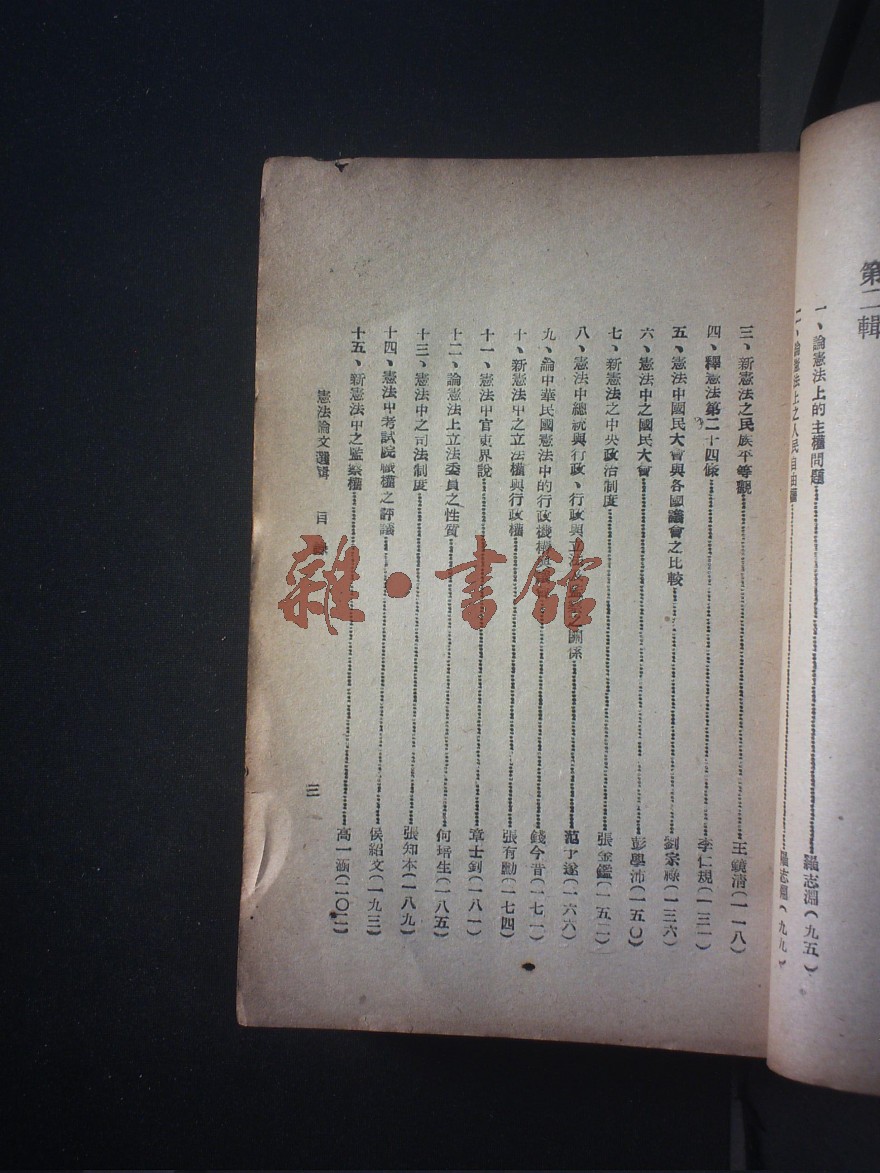 第二輯
一、論憲法上的主權問題……羅志淵（九五）
二、論憲法上之人民自由權……羅志淵（九九）
三、新憲法之民族平等觀……王鏡清（一一八）
四、釋憲法第二十四條……李仁規（一三一）
五、憲法中國民大會與各國議會之比較……劉宗祿（一三六）
六、憲法中之國民大會……彭學沛（一五〇）
七、新憲法之中央政治制度……張金鑑（一五二）
八、憲法中總統與行政、行政與立法 之關係……范予遂（一六六）
九、論中華民國憲法中的行政機構與……錢今昔（一七一）
十、新憲法中之立法權與行政權……張有勳（一七四）
十一、憲法中官吏界說……章士釗（一八一）
十二、論憲法上立法委員之性質……何培生（一八五）
十三、憲法中之司法制度……張知本（一八九）
十四、憲法中考試院職權之評議……侯紹文（一九三）
十五、新憲法中之監察權……高一涵（二〇二）
憲法論文選輯 目錄 三
雜·書館